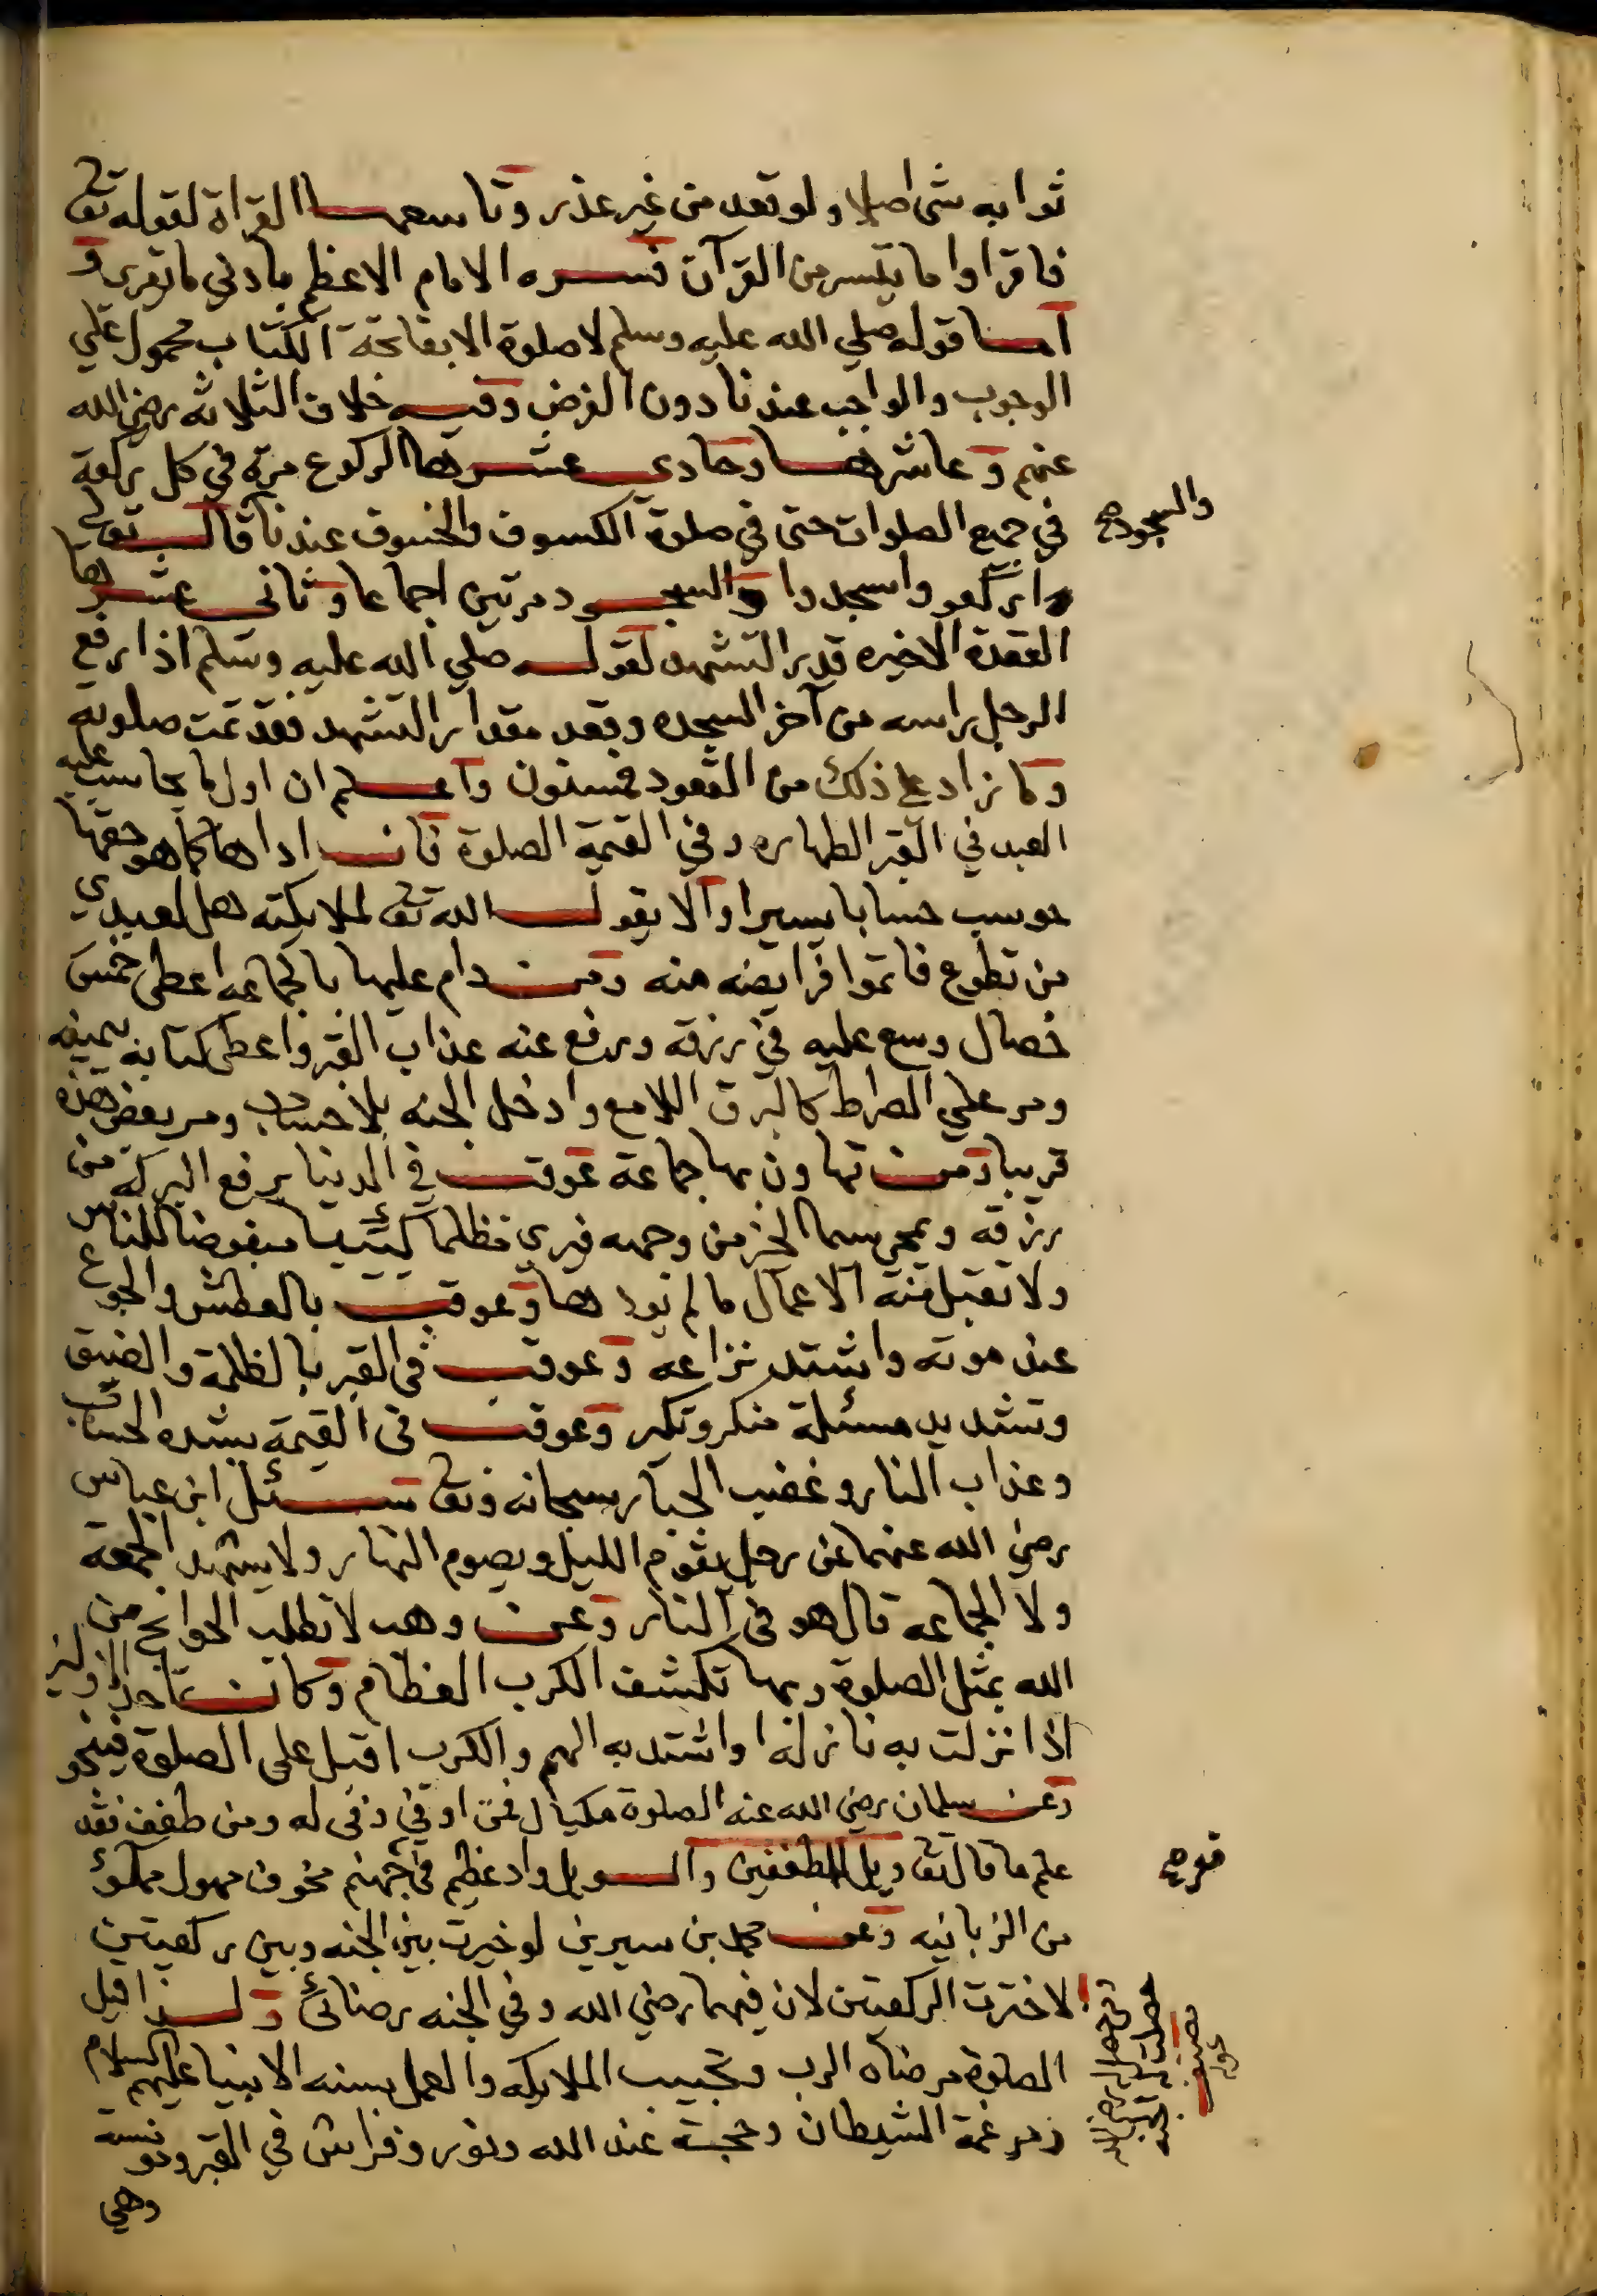 ثوابه شى اصلا ولو تعد من غير عذر وتاسعها القراة لقوله تع
فاقراوا ما تيسر من القرآن فسره الامام الاعظم بادني ما تقرى و
اما قوله صلي الله عليه وسلم لا صلوة الا بفاتحة الكتاب محمول علي
الوجوب والواجب عندنا دون الفرض وفيه خلاف الثلاثه رضي الله
عنهم وعاشرها وحادى عشرها الركوع مرة في كل ركعة
والسجود صح
في جميع الصلوات حتى في صلوة الكسوف والخسوف عندنا قال تعالى
واركعو واسجدوا والسجود مرتين اجماعا وثانى عشرها
القعدة الاخيره قدر التشهد لقوله صلي الله عليه وسلم اذا رفع
الرجل راسه من آخر السجده وقعد مقدار التشهد فقد تمت صلوته
وما زاد على ذلك من القعود فمسنون واعلم ان اول ما يحاسب عليه
العبد في القبر الطهاره وفي القيمة الصلوة فان اداها كما هو حقها
حوسب حسابا يسيرا والا يقول الله تع لملايكته هل لعبدي
من تطوع فاتموا فرايضه منه ومن دام عليها بالجماعه اعطى خمس
خصال وسع عليه في رزقه ورفع عنه عذاب القبر واعطى كتابه بيمينه
ومر علي الصراط كالبرق اللامع وادخل الجنه بلا حساب ومر بعض هذه
قريبا ومن تهاون بها جماعة عوقب في الدنيا برفع البركة من
رزقه ويمحى سيما الخير من وجهه فيري مظلما كئيبا مبغوضا للناس
ولا تقبل منه الاعمال ما لم يودها وعوقب بالعطش والجوع
عند موته واشتد نزاعه وعوقب في القبر بالظلمة والضيق
وتشديد مسئلة منكر ونكير وعوقب فى القيمة بشده الحساب
وعذاب النار وغضب الجبار سبحانه وتع سئل ابن عباس
رضي الله عنهما عن رجل يقوم الليل ويصوم النهار ولا يشهد الجمعة
ولا الجماعه قال هو في النار وعن وهب لا تطلب الحوايج من
الله بمثل الصلوة وبها تكشف الكرب العظام وكان احد الاولين
اذا نزلت به نازلة او اشتد به الهم والكرب اقبل على الصلوة فينجو
وعن سلمان رضي الله عنه الصلوة مكيال فمن اوفي وفى له ومن طفف فقد
علم ما قال تع ويل للمطففين والويل واد عظيم في جهنم مخوف مهول مملوء
من الزبانيه وعن محمد بن سيرين لو خيرت بين الجنه وبين ركعيتين
لاخترت الركعتين لان فيهما رضي الله وفي الجنه رضائى ولذا قيل
الصلوة مرضاه الرب وتحبيب الملايكه والعمل بسنه الانبيا عليهم السلام
ومرغمة الشيطان وحجة عند الله ونور وفراش في القبر ومونسة
وهي